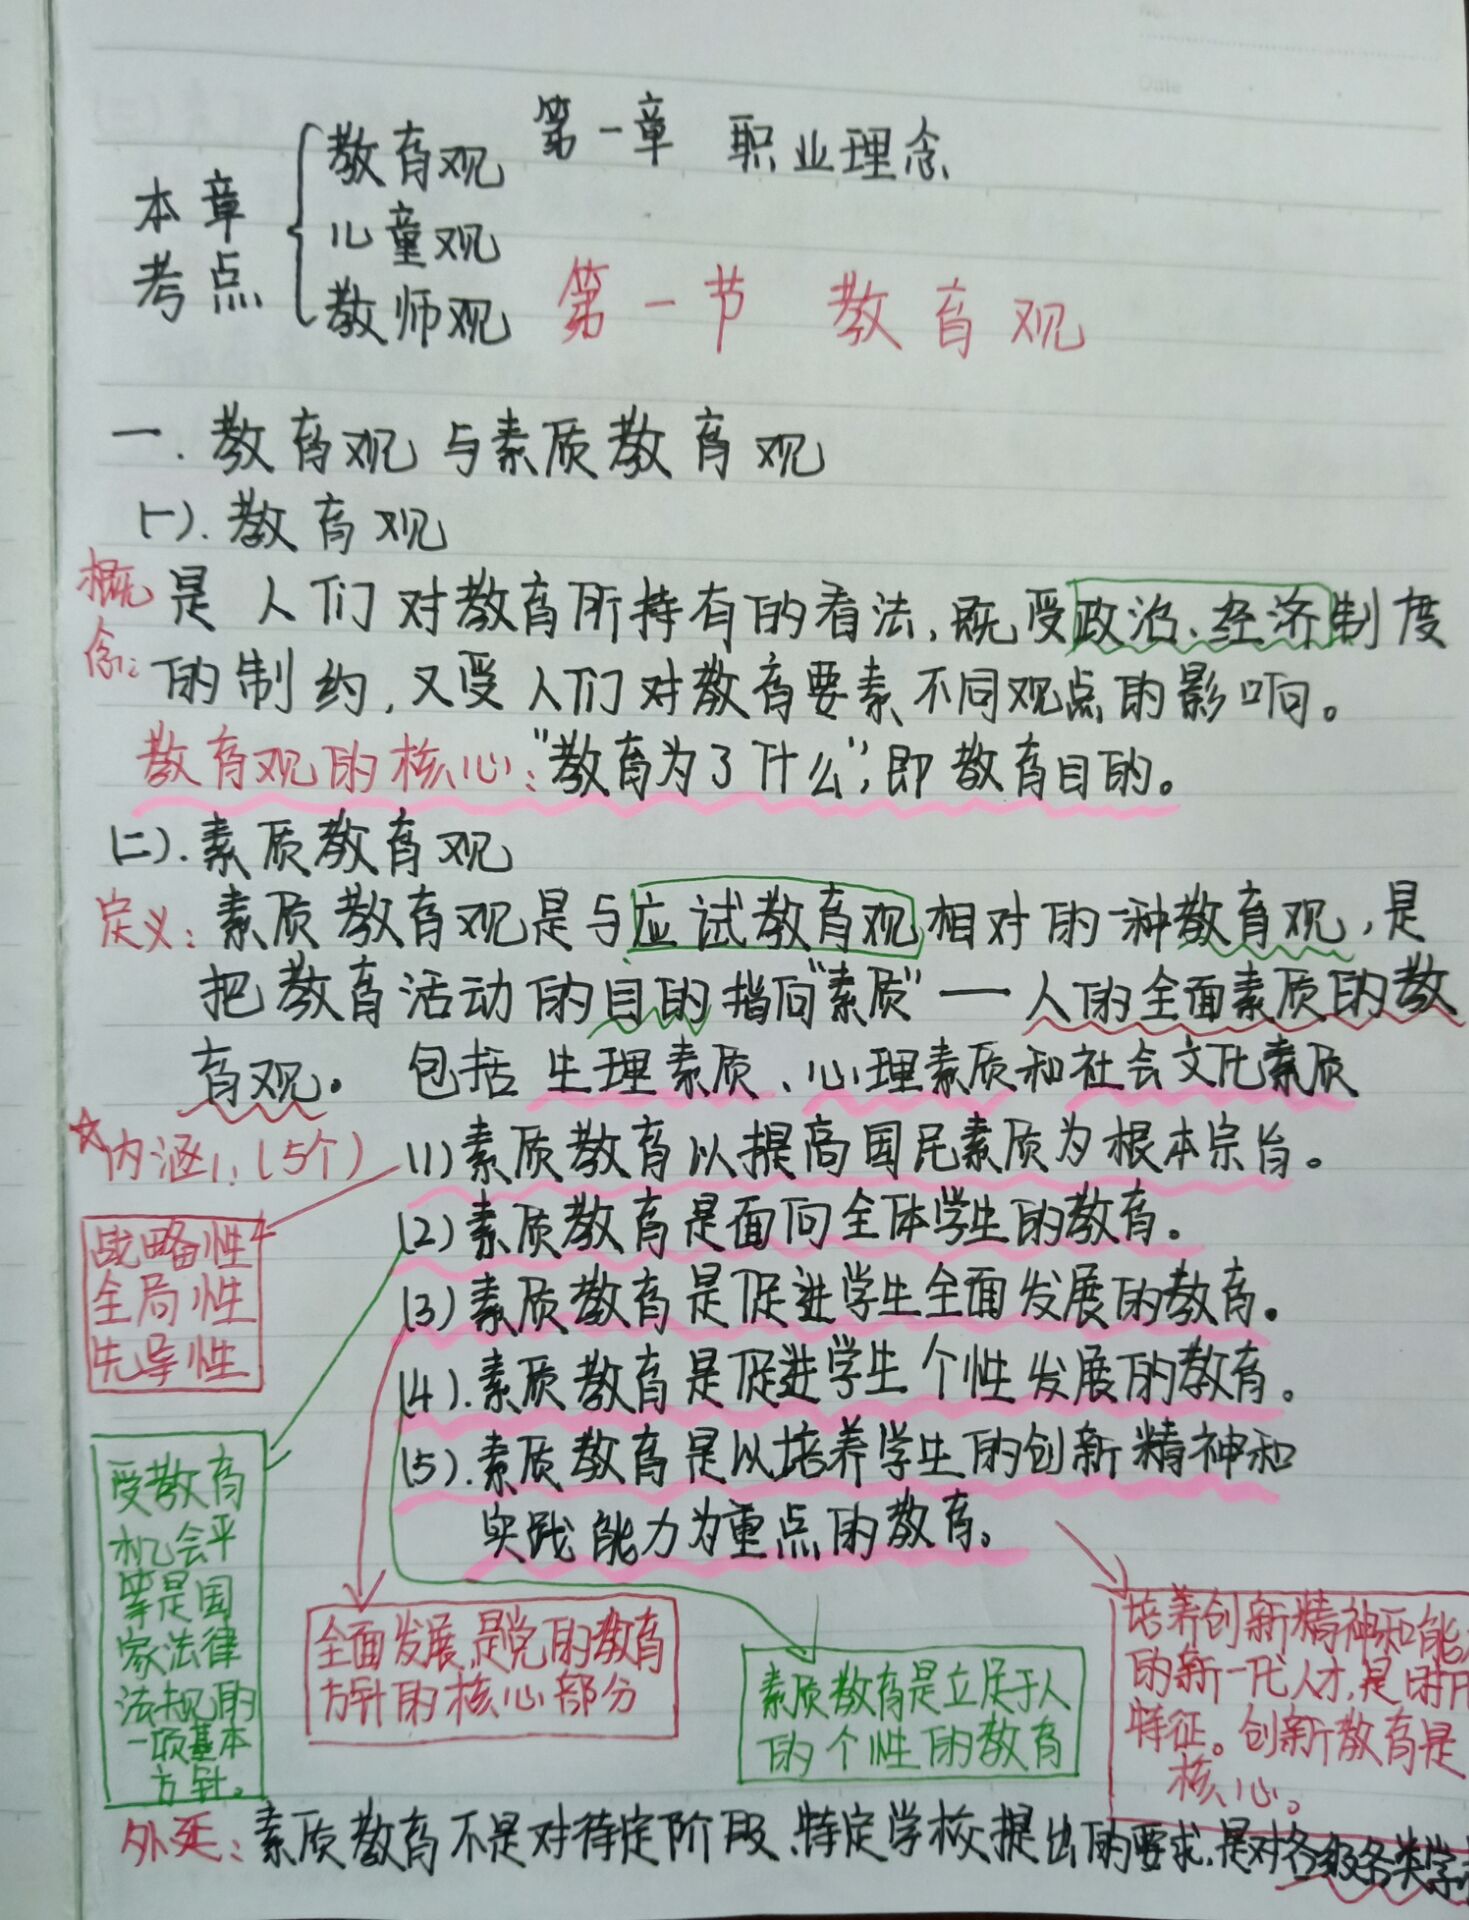 第一章 职业理念
本章
考点
教育观
儿童观
教师观
第一节 教育观
一. 教育观与素质教育观
(一). 教育观
概念: 是人们对教育所持有的看法, 既受政治、经济制度
的制约, 又受人们对教育要素不同观点的影响。
教育观的核心: “教育为了什么”, 即教育目的。
(二). 素质教育观
定义: 素质教育观是与应试教育观相对的一种教育观, 是
把教育活动的目的指向“素质”——人的全面素质的教
育观。 包括生理素质、心理素质和社会文化素质
☆内涵: (5个) (1) 素质教育以提高国民素质为根本宗旨。
(2) 素质教育是面向全体学生的教育。
(3) 素质教育是促进学生全面发展的教育。
(4). 素质教育是促进学生个性发展的教育。
(5). 素质教育是以培养学生的创新精神和
实践能力为重点的教育。
战略性
全局性
先导性
受教育
机会平
等是国
家法律
法规的
一项基本
方针。
全面发展是党的教育
方针的核心部分
素质教育是立足于人
的个性的教育
培养创新精神和能
的新一代人才, 是时
特征。创新教育是
核心。
外延: 素质教育不是对待定阶段、特定学校提出的要求, 是对各级各类学